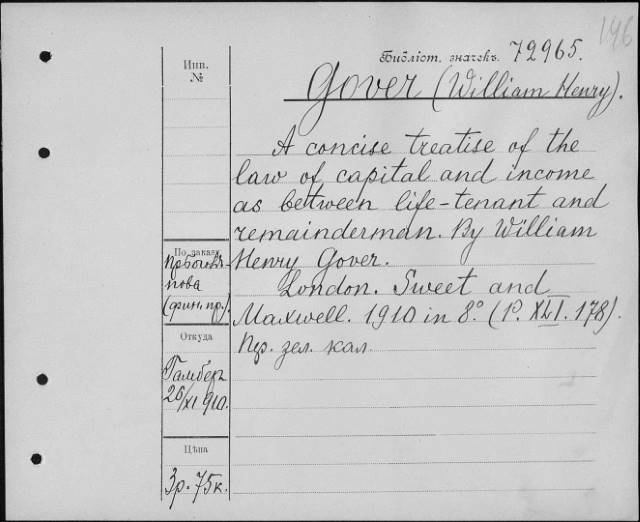 196
Библіот. значекъ. 72965.
Инв.
№
Gover (William Henry).
A concise treatise of the
law of capital and income
as between life-tenant and
remainderman. By William
Henry Gover.
London. Sweet and
Maxwell. 1910 in 8.° (P. XLI. 178).
Пр. зел. кал.
По заказу
пова
(фин. пр.).
Откуда
26/XI 910.
Цѣна
3р. 75к.